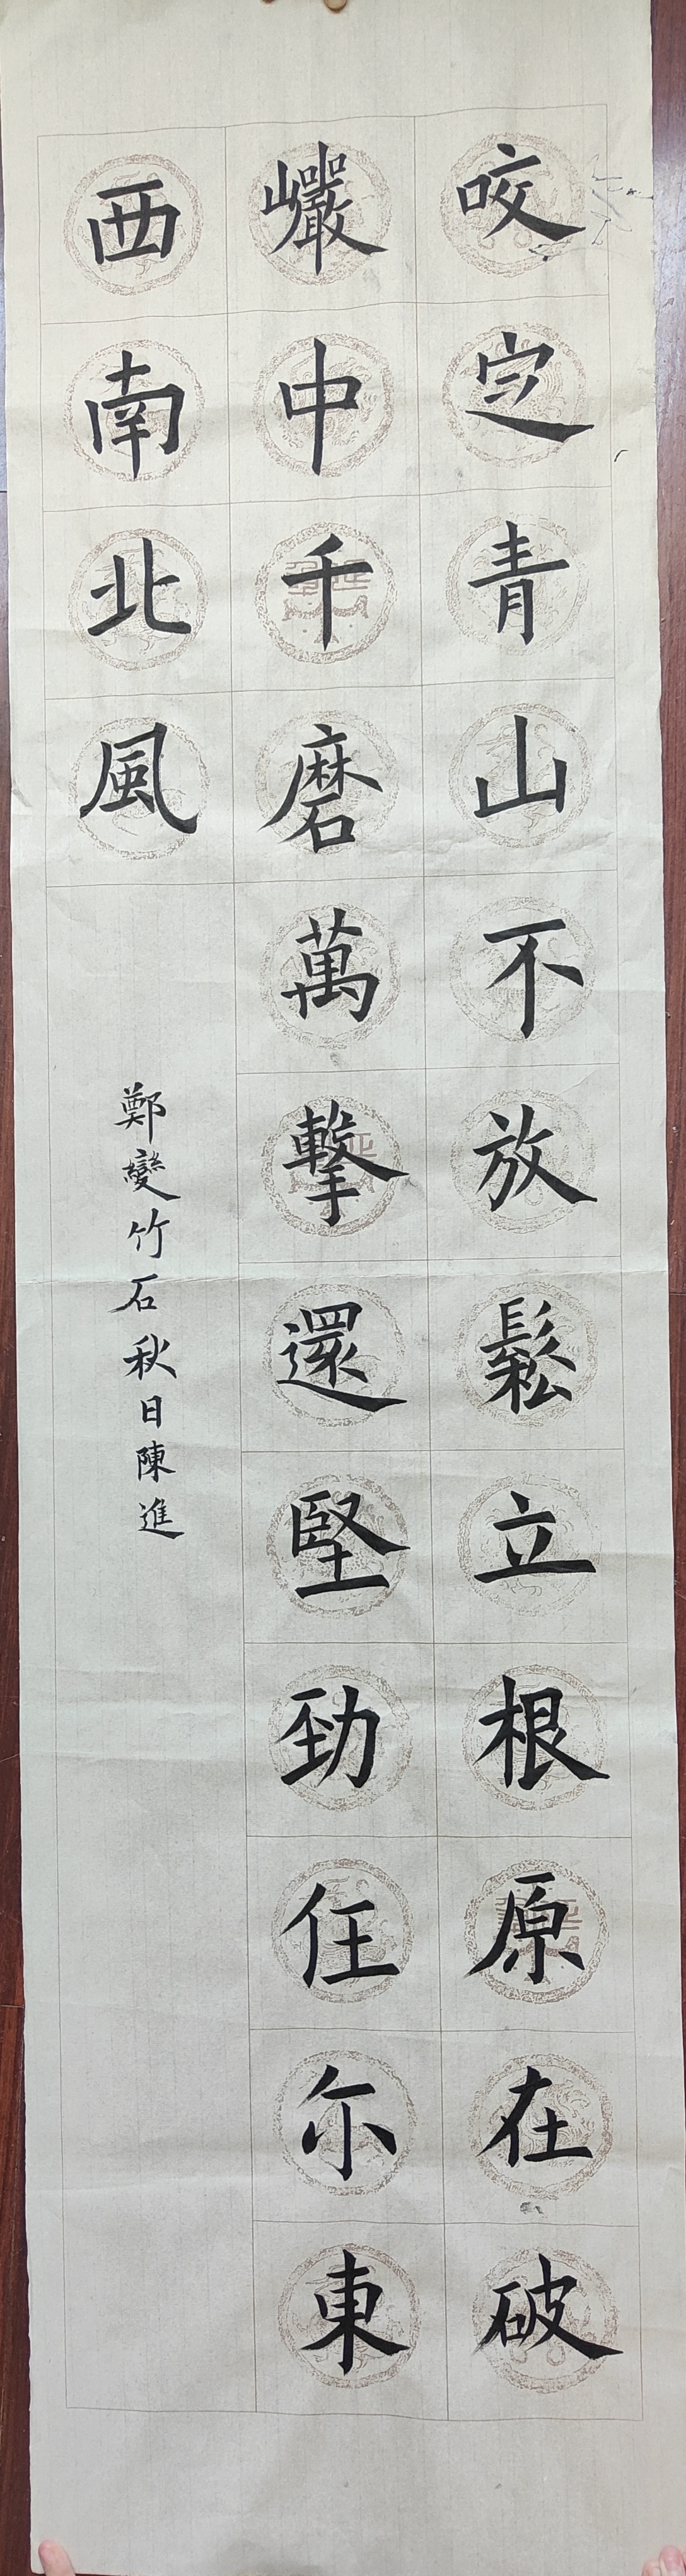 咬㝎青山不放鬆立根原在破
巗中千磨萬擊還堅勁任尓東
西南北風
鄭變竹石秋日陳進